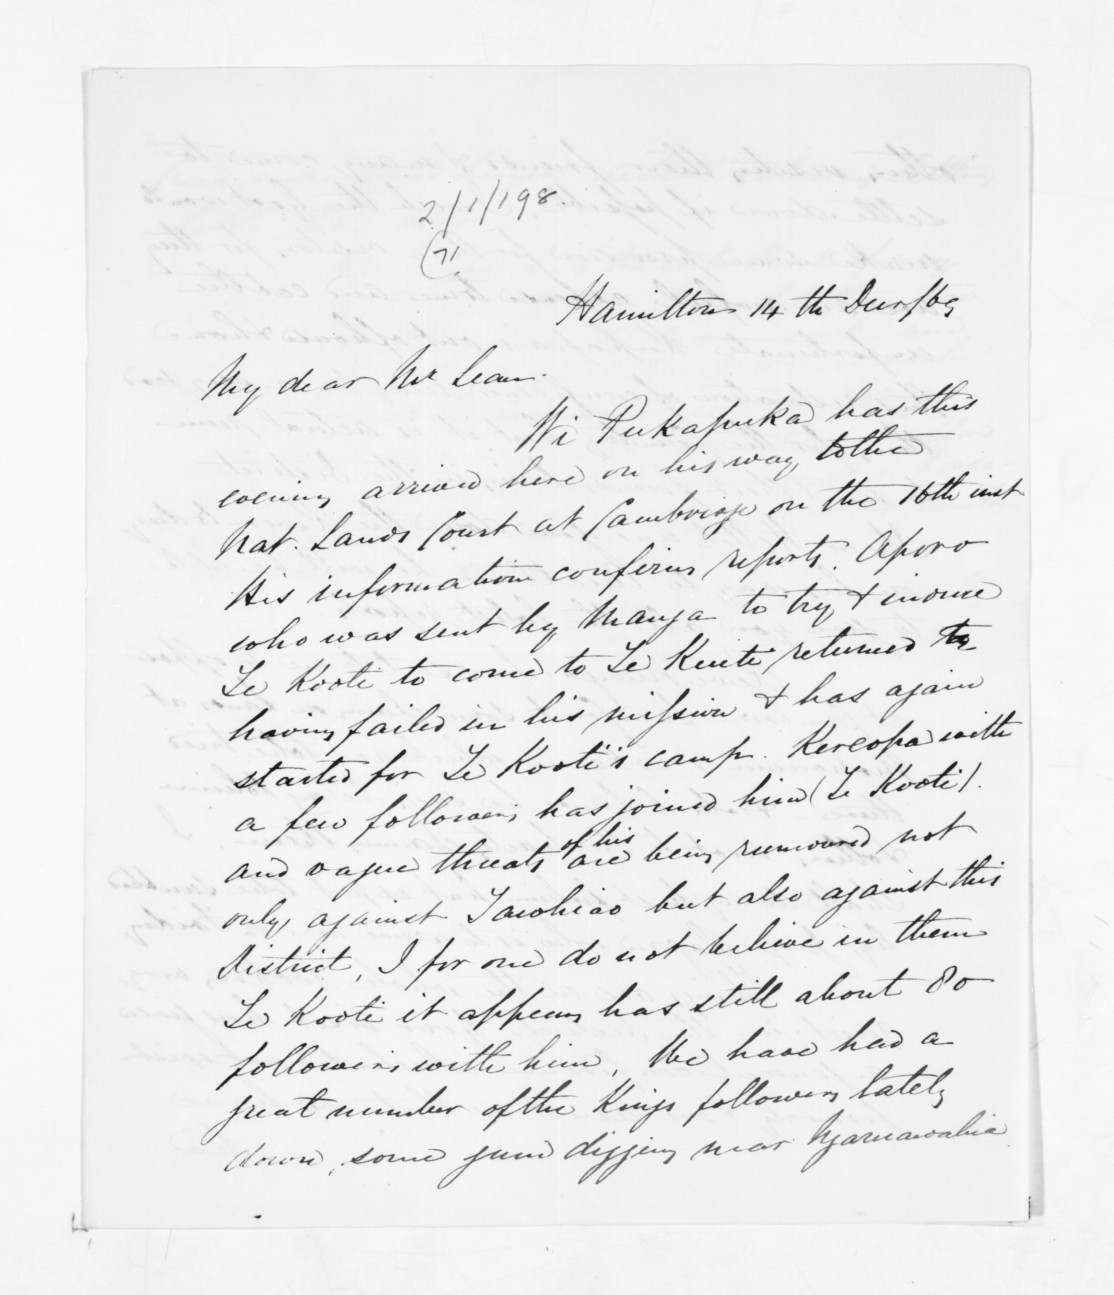 2/1/198
(71
Hamilton 14 th Decr/69
My dear Mr Lean.
Wi Pukapuka has this
evening arrived here on his way to the
Nat. Lands Court at Cambridge on the 16th inst
His information confirms reports. Aporo
who was sent by Manga to try & induce
Te Kooti to come to Te Kuiti, returned
having failed in his mission & has again
started for Te Kooti's camp. Kereopa with
a few followers has joined him (Te Kooti).
and vague threats of his are being rumoured not
only against Tawhiao but also against this
District, I for one do not believe in them
Te Kooti it appears has still about 80
followers with him, We have had a
great number of the Kings followers lately
down, some gum digging near Ngaruawahia